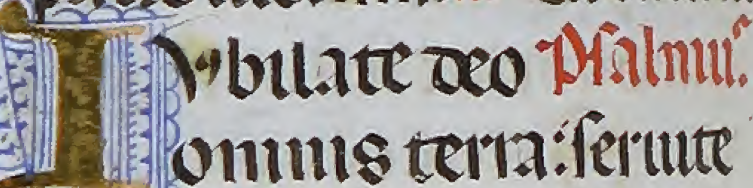 IVbilate deo Psalmus.
omnis terra: seruite